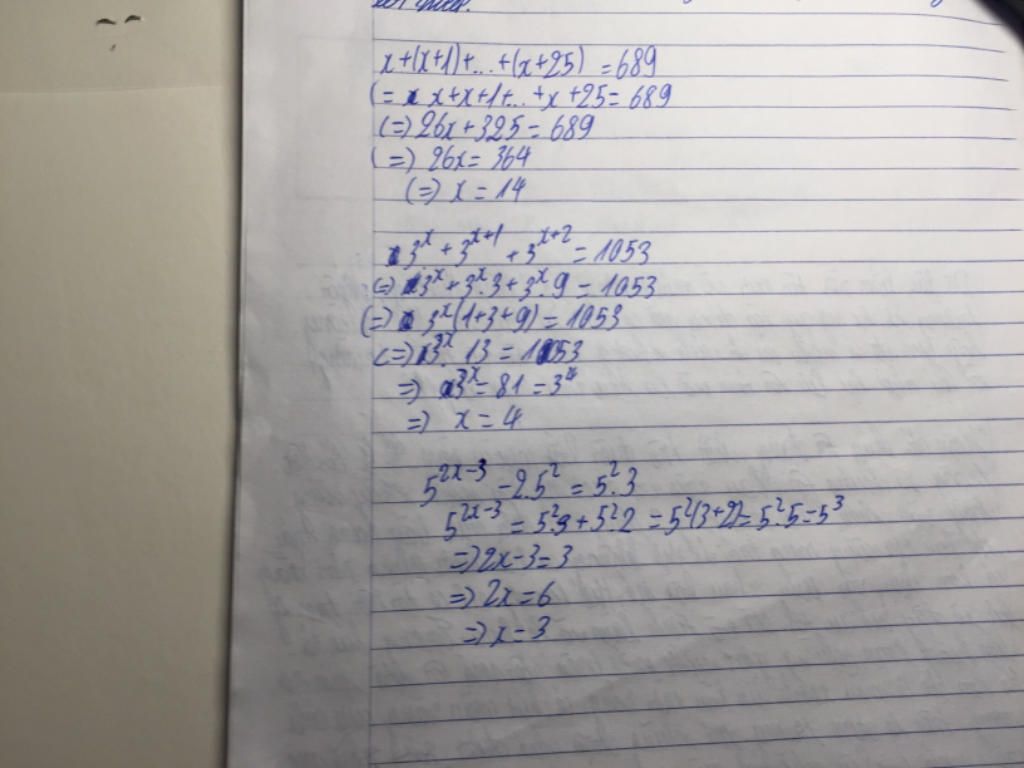 x+(x+1)+...+(x+25) = 689
(= x+x+1+...+x+25 = 689
(=) 26x+325 = 689
(=) 26x = 364
(=) x = 14
3^x + 3^{x+1} + 3^{x+2} = 1053
(=) 3^x + 3^x.3 + 3^x.9 = 1053
(=) 3^x(1+3+9) = 1053
(=) 3^x. 13 = 1053
=) 3^x = 81 = 3^4
=) x = 4
5^{2x-3} - 2.5^2 = 5^2.3
5^{2x-3} = 5^2.3 + 5^2.2 = 5^2(3+2) = 5^2.5 = 5^3
=) 2x-3 = 3
=) 2x = 6
=) x = 3